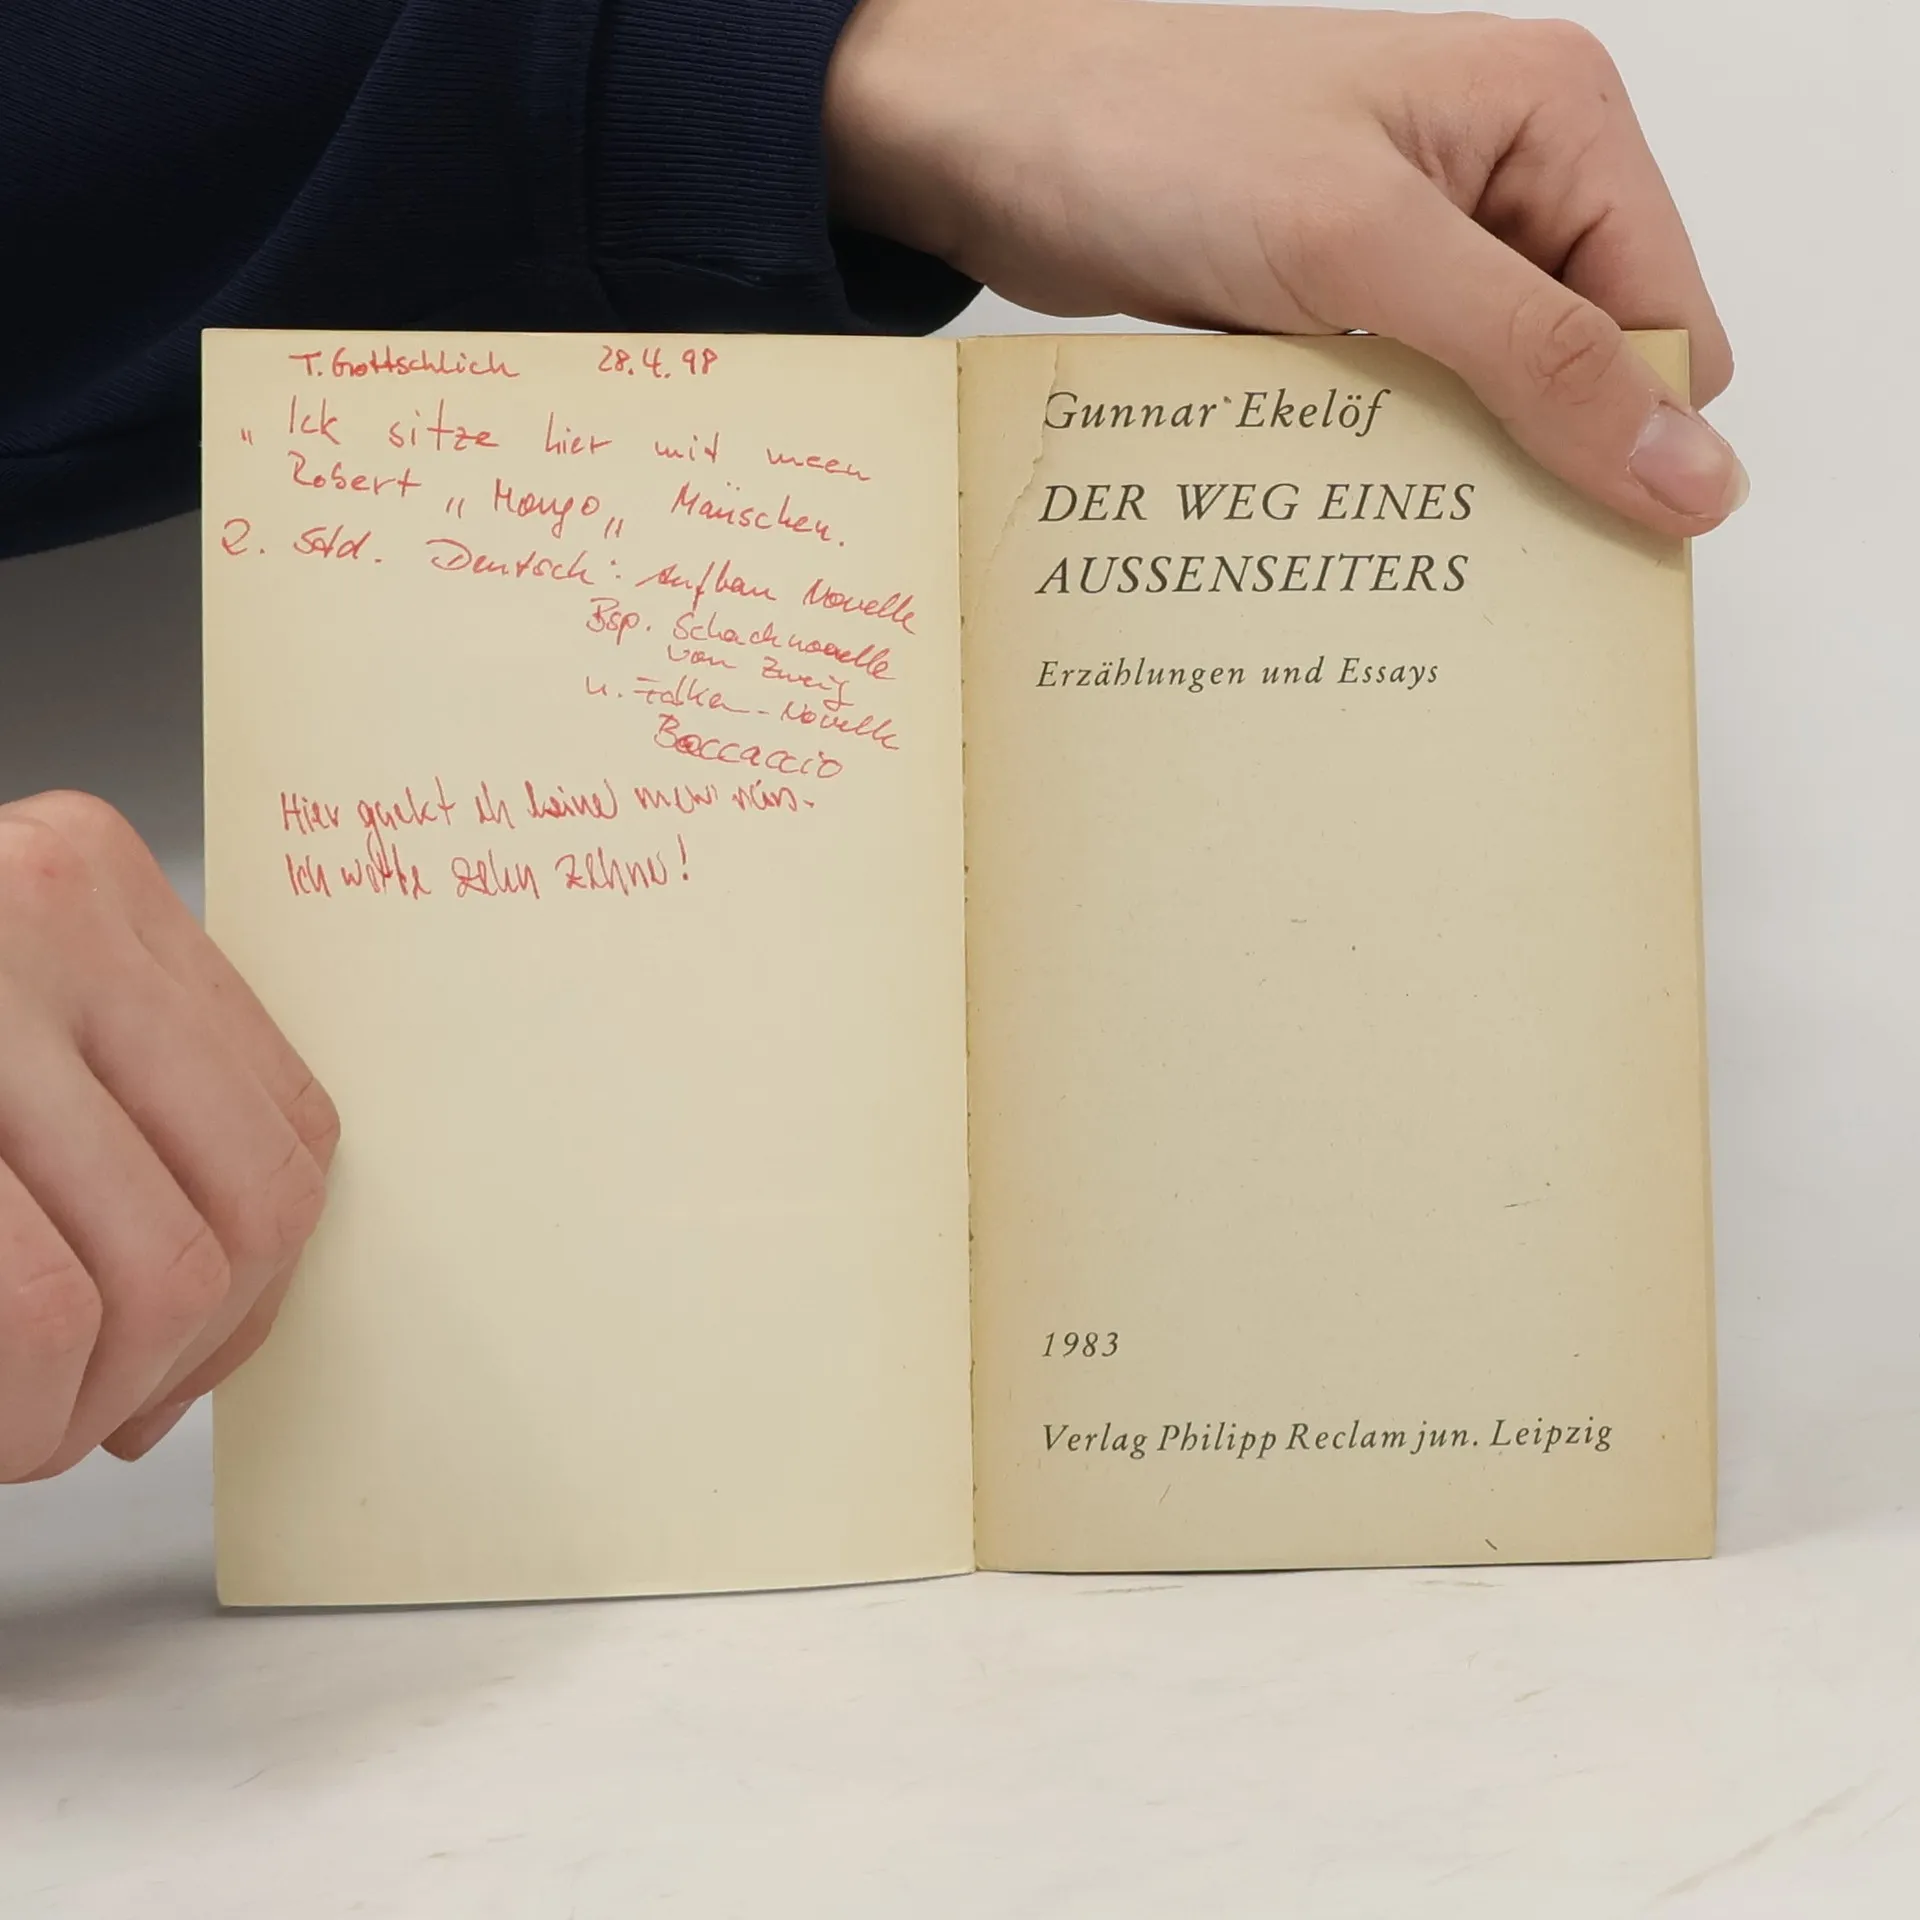 T. Gottschlich 28.4.98
" Ick sitze hier mit meen
Robert "Mongo" Mäuschen.
2. Std. Deutsch: Aufbau Novelle
Bsp. Schachnovelle
von Zweig
u. Falken-Novelle
Boccaccio
Hier quekt ih keine
Ich wette zehn zehne!
Gunnar Ekelöf
DER WEG EINES
AUSSENSEITERS
Erzählungen und Essays
1983
Verlag Philipp Reclam jun. Leipzig